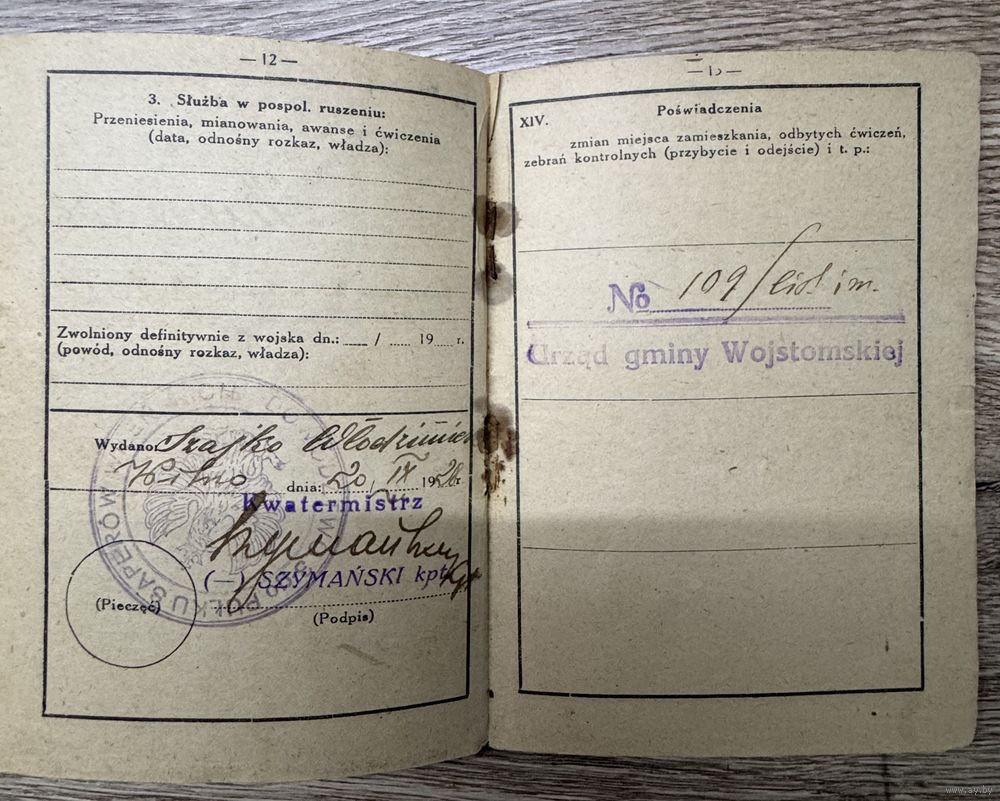 — 12 —
3. Służba w pospol. ruszeniu:
Przeniesienia, mianowania, awanse i ćwiczenia
(data, odnośny rozkaz, władza):
Zwolniony definitywnie z wojska dn.: / 19 r.
(powód, odnośny rozkaz, władza):
Wydano: Szajko Włodzimierz
Wilno dnia: 20 IX 1926 r.
Kwatermistrz
(—) SZYMAŃSKI kpt.
(Pieczęć)
(Podpis)
POLKU SAPERÓW
XIV. Poświadczenia
zmian miejsca zamieszkania, odbytych ćwiczeń,
zebrań kontrolnych (przybycie i odejście) i t. p.:
№ 109/
Urząd gminy Wojstomskiej
www.ay.by